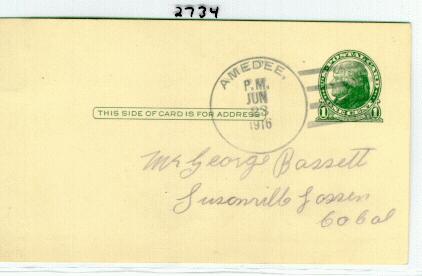 2734
AMEDEE,
P.M.
JUN
23
1916
THIS SIDE OF CARD IS FOR ADDRESS
1 1
Mr George Bassett
Susanville Lassen
Co Cal